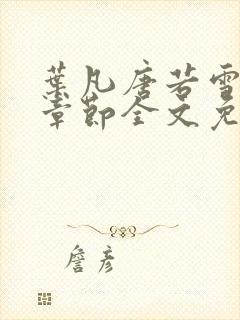 葉凡唐若雪
章節全文免
詹彥